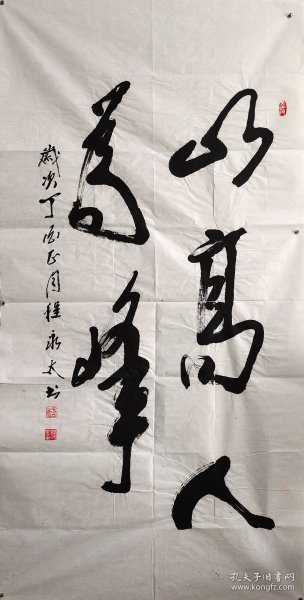 山高人
為峰
歲次丁酉正月程永太书
孔夫子旧书网
www.kongfz.com